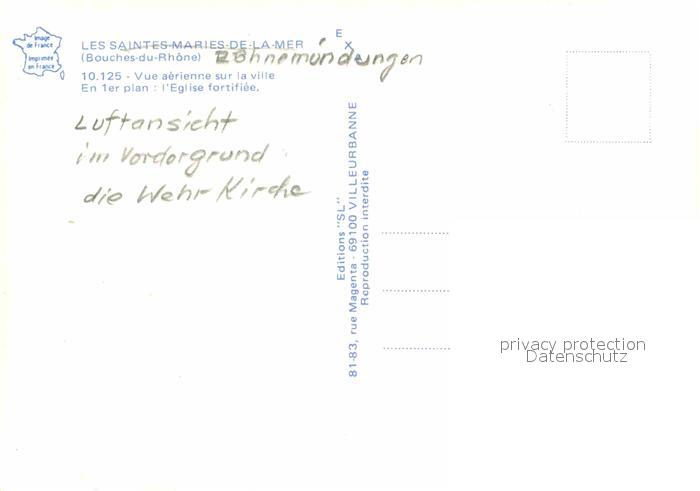 Image
de France
Imprimée
en France
LES SAINTES-MARIES-DE-LA-MER
(Bouches-du-Rhône) Rôhnemöndungen
10.125 - Vue aérienne sur la ville
En 1er plan : l'Eglise fortifiée.
Luftansicht
im Vordorgrund
die Wehr Kirche
E
X
Editions "SL"
81-83, rue Magenta - 69100 VILLEURBANNE
Reproduction interdite
privacy protection
Datenschutz